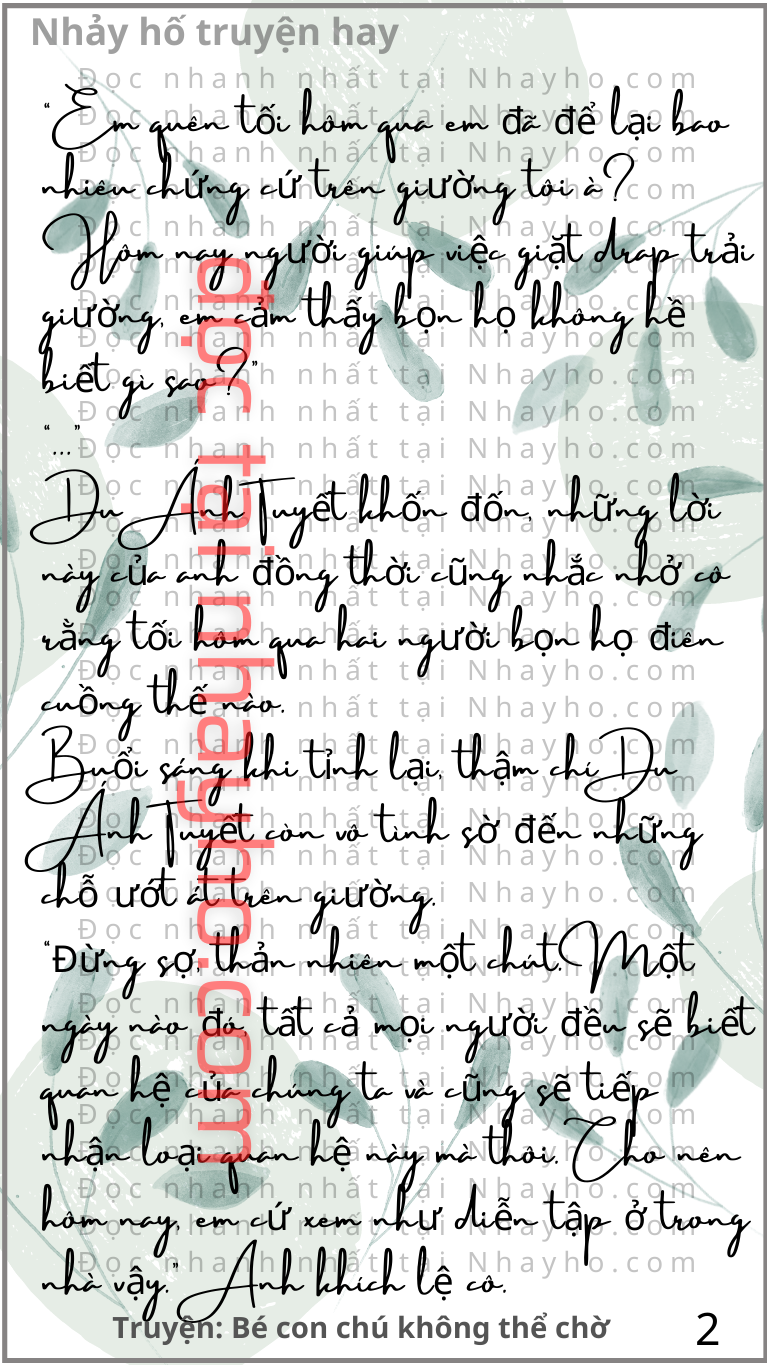 Nhảy hố truyện hay
“Em quên tối hôm qua em đã để lại bao
nhiêu chứng cứ trên giường tôi à?
Hôm nay người giúp việc giặt drap trải
giường, em cảm thấy bọn họ không hề
biết gì sao?”
“...”
Du Ánh Tuyết khốn đốn, những lời
này của anh đồng thời cũng nhắc nhở cô
rằng tối hôm qua hai người bọn họ điên
cuồng thế nào.
Buổi sáng khi tỉnh lại, thậm chí Du
Ánh Tuyết còn vô tình sờ đến những
chỗ ướt át trên giường.
“Đừng sợ, thản nhiên một chút. Một
ngày nào đó, tất cả mọi người đều sẽ biết
quan hệ của chúng ta và cũng sẽ tiếp
nhận loại quan hệ này mà thôi. Cho nên
hôm nay, em cứ xem như diễn tập ở trong
nhà vậy.” Anh khích lệ cô.
đọc tại nhayho.com
Đọc nhanh nhất tại Nhayho.com
Truyện: Bé con chú không thể chờ
2